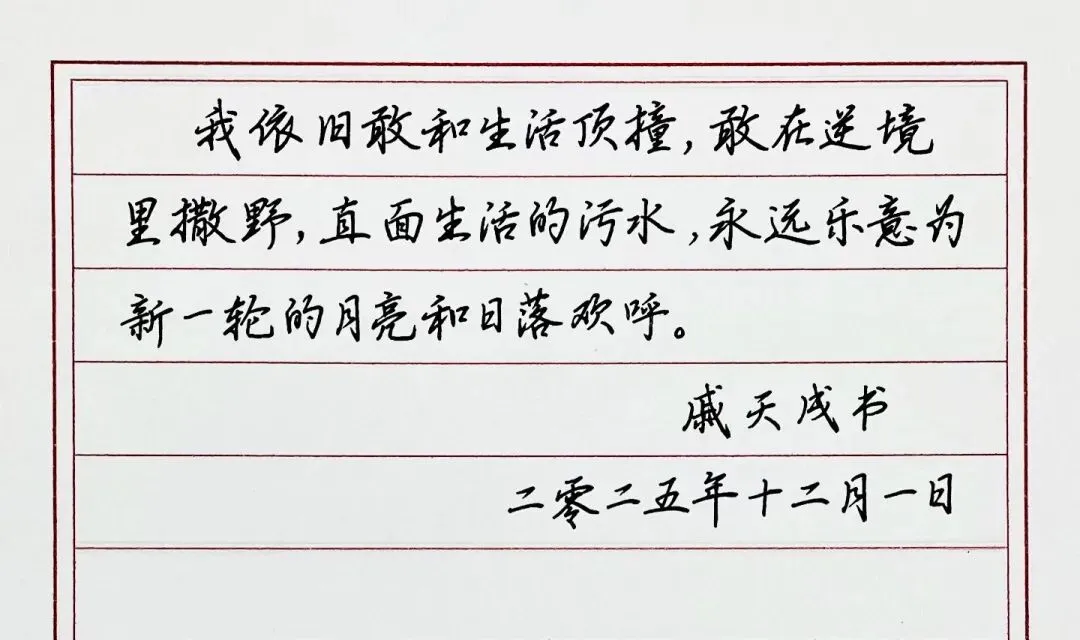 我依旧敢和生活顶撞,敢在逆境
里撒野,直面生活的污水,永远乐意为
新一轮的月亮和日落欢呼。
戚天成书
二零二五年十二月一日